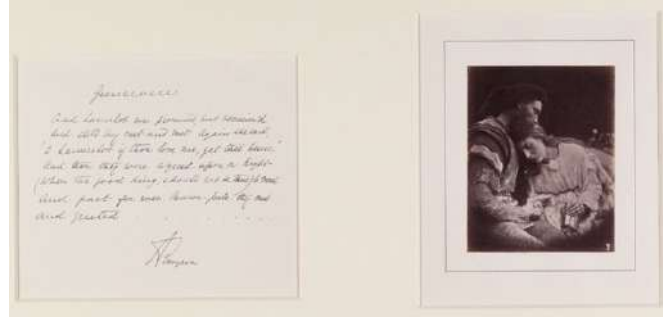 Guinevere
And Lancelot ever promised, but remained
And still they met and met. Again she said,
"O Lancelot, if thou love me, get thee hence."
And then they were agreed upon a night
(When the good king should not be there) to meet
And part for ever. Passion-pale they met
And greeted
A Tennyson